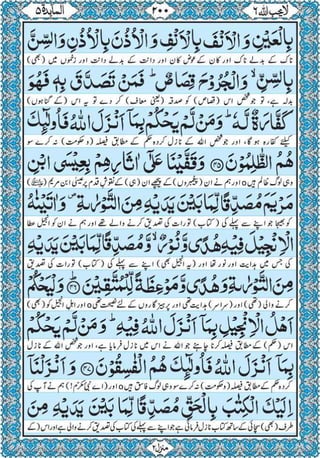 لا یحب اللہ ۶ ۲۰۰ المآئدۃ ۵
بِالْعَيْنِ وَالْاَنْفَ بِالْاَنْفِ وَالْاُذُنَ بِالْاُذُنِ وَالسِّنَّ
بِالسِّنِّ ۙ وَالْجُرُوْحَ قِصَاصٌ ؕ فَمَنْ تَصَدَّقَ بِهٖ فَهُوَ
بدلہ ہے، تو جو شخص اس (قصاص) کو صدقہ (یعنی معاف) کر دے تو یہ اس (کے گناہوں)
كَفَّارَةٌ لَّهٗ ؕ وَمَنْ لَّمْ يَحْكُمْ بِمَاۤ اَنْزَلَ اللّٰهُ فَاُولٰٓئِكَ
کیلئے کفارہ ہو گا، اور جو شخص اللہ کے نازل کردہ حکم کے مطابق فیصلہ (و حکومت) نہ کرے سو
هُمُ الظّٰلِمُوْنَ ﴿۴۵﴾ وَقَفَّيْنَا عَلٰۤى اٰثَارِهِمْ بِعِيْسَى ابْنِ
وہی لوگ ظالم ہیں o اور ہم نے ان (پیغمبروں) کے پیچھے ان (ہی) کے نقوشِ قدم پر عیسیٰ ابن مریم
مَرْيَمَ مُصَدِّقًا لِّمَا بَيْنَ يَدَيْهِ مِنَ التَّوْرٰىةِ ۪ وَاٰتَيْنٰهُ
کو بھیجا جو اپنے سے پہلے کی (کتاب) تورات کی تصدیق کرنے والے تھے اور ہم نے ان کو انجیل عطا
الْاِنْجِيْلَ فِيْهِ هُدًى وَّنُوْرٌ ۙ وَّمُصَدِّقًا لِّمَا بَيْنَ يَدَيْهِ
کی جس میں ہدایت اور نور تھا اور (یہ انجیل بھی) اپنے سے پہلے کی (کتاب) تورات کی تصدیق
مِنَ التَّوْرٰىةِ وَهُدًى وَّمَوْعِظَةً لِّلْمُتَّقِيْنَ ﴿۴۶﴾ وَلْيَحْكُمْ
کرنے والی (تھی) اور (سراسر) ہدایت تھی اور پرہیزگاروں کے لئے نصیحت تھی o اور اہلِ انجیل کو (بھی)
اَهْلُ الْاِنْجِيْلِ بِمَاۤ اَنْزَلَ اللّٰهُ فِيْهِ ؕ وَمَنْ لَّمْ يَحْكُمْ
اس (حکم) کے مطابق فیصلہ کرنا چاہئے جو اللہ نے اس میں نازل فرمایا ہے، اور جو شخص اللہ کے نازل
بِمَاۤ اَنْزَلَ اللّٰهُ فَاُولٰٓئِكَ هُمُ الْفٰسِقُوْنَ ﴿۴۷﴾ وَاَنْزَلْنَاۤ
کردہ حکم کے مطابق فیصلہ (و حکومت) نہ کرے سو وہی لوگ فاسق ہیں o اور (اے نبی مکرّم!) ہم نے آپ کی
اِلَيْكَ الْكِتٰبَ بِالْحَقِّ مُصَدِّقًا لِّمَا بَيْنَ يَدَيْهِ مِنَ
طرف (بھی) سچائی کے ساتھ کتاب نازل فرمائی ہے جو اپنے سے پہلے کی کتاب کی تصدیق کرنے والی ہے اور اس (کے
منزل ۲